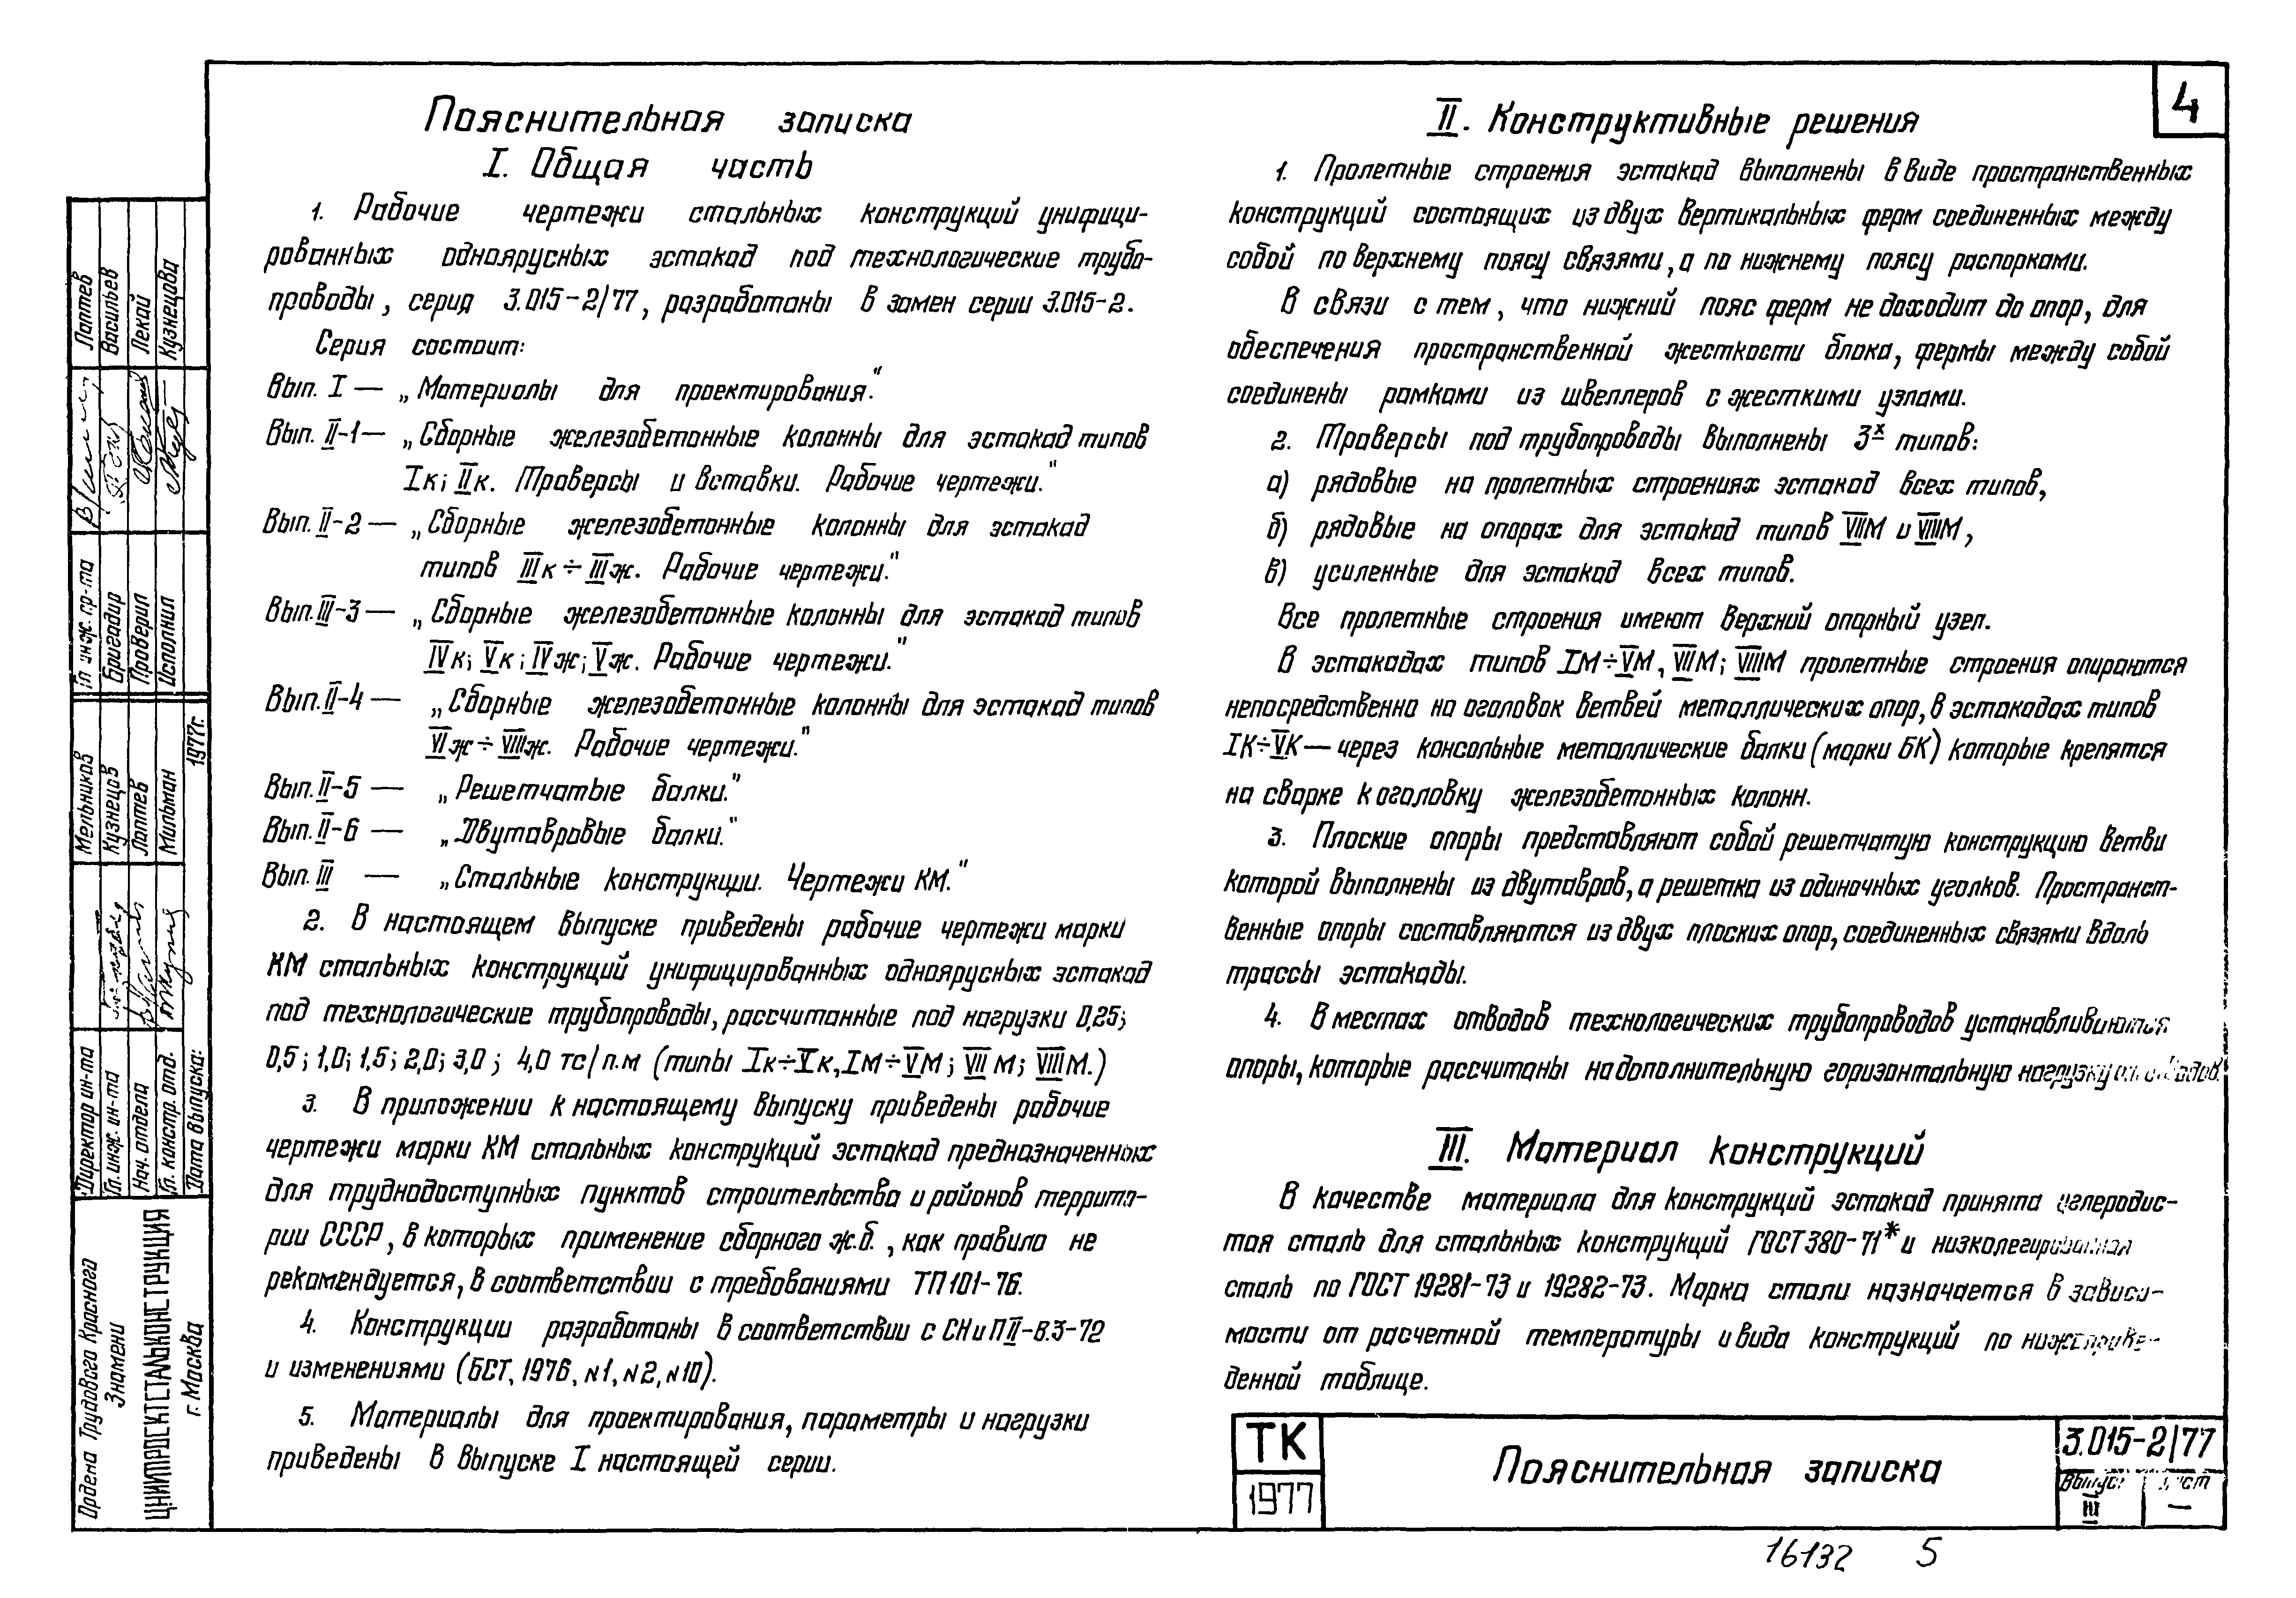 4
Пояснительная записка
I. Общая часть
1. Рабочие чертежи стальных конструкций унифици-
рованных одноярусных эстакад под технологические трубо-
проводы, серия 3.015-2/77, разработаны в замен серии 3.015-2.
Серия состоит:
Вып. I — „Материалы для проектирования."
Вып. II-1 — „Сборные железобетонные колонны для эстакад типов
Iк; IIк. Траверсы и вставки. Рабочие чертежи."
Вып. II-2 — „Сборные железобетонные колонны для эстакад
типов IIIк÷IIIж. Рабочие чертежи."
Вып. III-3 — „Сборные железобетонные колонны для эстакад типов
IVк; Vк; IVж; Vж. Рабочие чертежи."
Вып. II-4 — „Сборные железобетонные колонны для эстакад типов
VIж÷VIIIж. Рабочие чертежи."
Вып. II-5 — „Решетчатые балки."
Вып. II-6 — „Двутавровые балки."
Вып. III — „Стальные конструкции. Чертежи КМ."
2. В настоящем выпуске приведены рабочие чертежи марки
КМ стальных конструкций унифицированных одноярусных эстакад
под технологические трубопроводы, рассчитанные под нагрузки 0,25;
0,5; 1,0; 1,5; 2,0; 3,0; 4,0 тс/п.м (типы Iк÷Vк, IМ÷VМ; VIIМ; VIIIМ.)
3. В приложении к настоящему выпуску приведены рабочие
чертежи марки КМ стальных конструкций эстакад предназначенных
для труднодоступных пунктов строительства и районов террито-
рии СССР, в которых применение сборного ж.б., как правило не
рекомендуется, в соответствии с требованиями ТП 101-76.
4. Конструкции разработаны в соответствии с СНиП II-В.3-72
и изменениями (БСТ, 1976, №1, №2, №10).
5. Материалы для проектирования, параметры и нагрузки
приведены в Выпуске I настоящей серии.
II. Конструктивные решения
1. Пролетные строения эстакад выполнены в виде пространственных
конструкций состоящих из двух вертикальных ферм соединенных между
собой по верхнему поясу связями, а по нижнему поясу распорками.
В связи с тем, что нижний пояс ферм не доходит до опор, для
обеспечения пространственной жесткости блока, фермы между собой
соединены рамками из швеллеров с жесткими узлами.
2. Траверсы под трубопроводы выполнены 3х типов:
а) рядовые на пролетных строениях эстакад всех типов,
б) рядовые на опорах для эстакад типов VIIМ и VIIIМ,
в) усиленные для эстакад всех типов.
Все пролетные строения имеют верхний опорный узел.
В эстакадах типов IМ÷VМ, VIIМ; VIIIМ пролетные строения опираются
непосредственно на оголовок ветвей металлических опор, в эстакадах типов
IК÷VК — через консольные металлические балки (марки БК) которые крепятся
на сварке к оголовку железобетонных колонн.
3. Плоские опоры представляют собой решетчатую конструкцию ветви
которой выполнены из двутавров, а решетка из одиночных уголков. Пространст-
венные опоры составляются из двух плоских опор, соединенных связями вдоль
трассы эстакады.
4. В местах отводов технологических трубопроводов устанавливаются
опоры, которые рассчитаны на дополнительную горизонтальную нагрузку от отводов.
III. Материал конструкций
В качестве материала для конструкций эстакад принята углеродис-
тая сталь для стальных конструкций ГОСТ 380-71* и низколегированная
сталь по ГОСТ 19281-73 и 19282-73. Марка стали назначается в зависи-
мости от расчетной температуры и вида конструкций по нижеприве-
денной таблице.
ТК
1977
Пояснительная записка
3.015-2/77
Выпуск
III
Лист
—
16132 5
Ордена Трудового Красного
Знамени
ЦНИИПРОЕКТСТАЛЬКОНСТРУКЦИЯ
г. Москва
Директор ин-та Мельников
Гл. инж. ин-та Кузнецов
Нач. отдела Лаптев
Гл. констр. отд. Мильман
Дата выпуска: 1977г.
Гл инж. пр-та Лаптев
Бригадир Васильев
Проверил Лекай
Исполнил Кузнецова